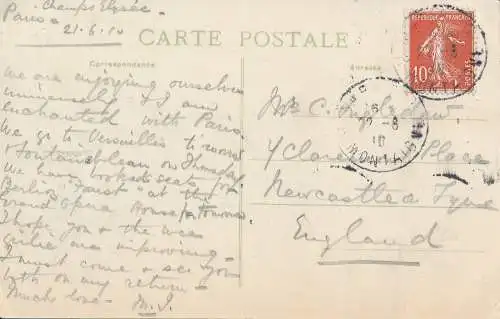 Champs Elysée
Paris
21.6.10
CARTE POSTALE
Correspondance
Adresse
RÉPUBLIQUE FRANÇAISE
10c
POSTES
We are enjoying ourselves
immensely & I am
enchanted with Paris
We go to Versailles
& Fontainebleau on Thursday
We have booked seats for
Berlioz "Faust" at the
Grand Opera House
I hope you & the wee
girlie are improving -
I must come & see you
both on my return -
Much love - M.J.
Mrs C.
4 Claremont Place
Newcastle Tyne
England